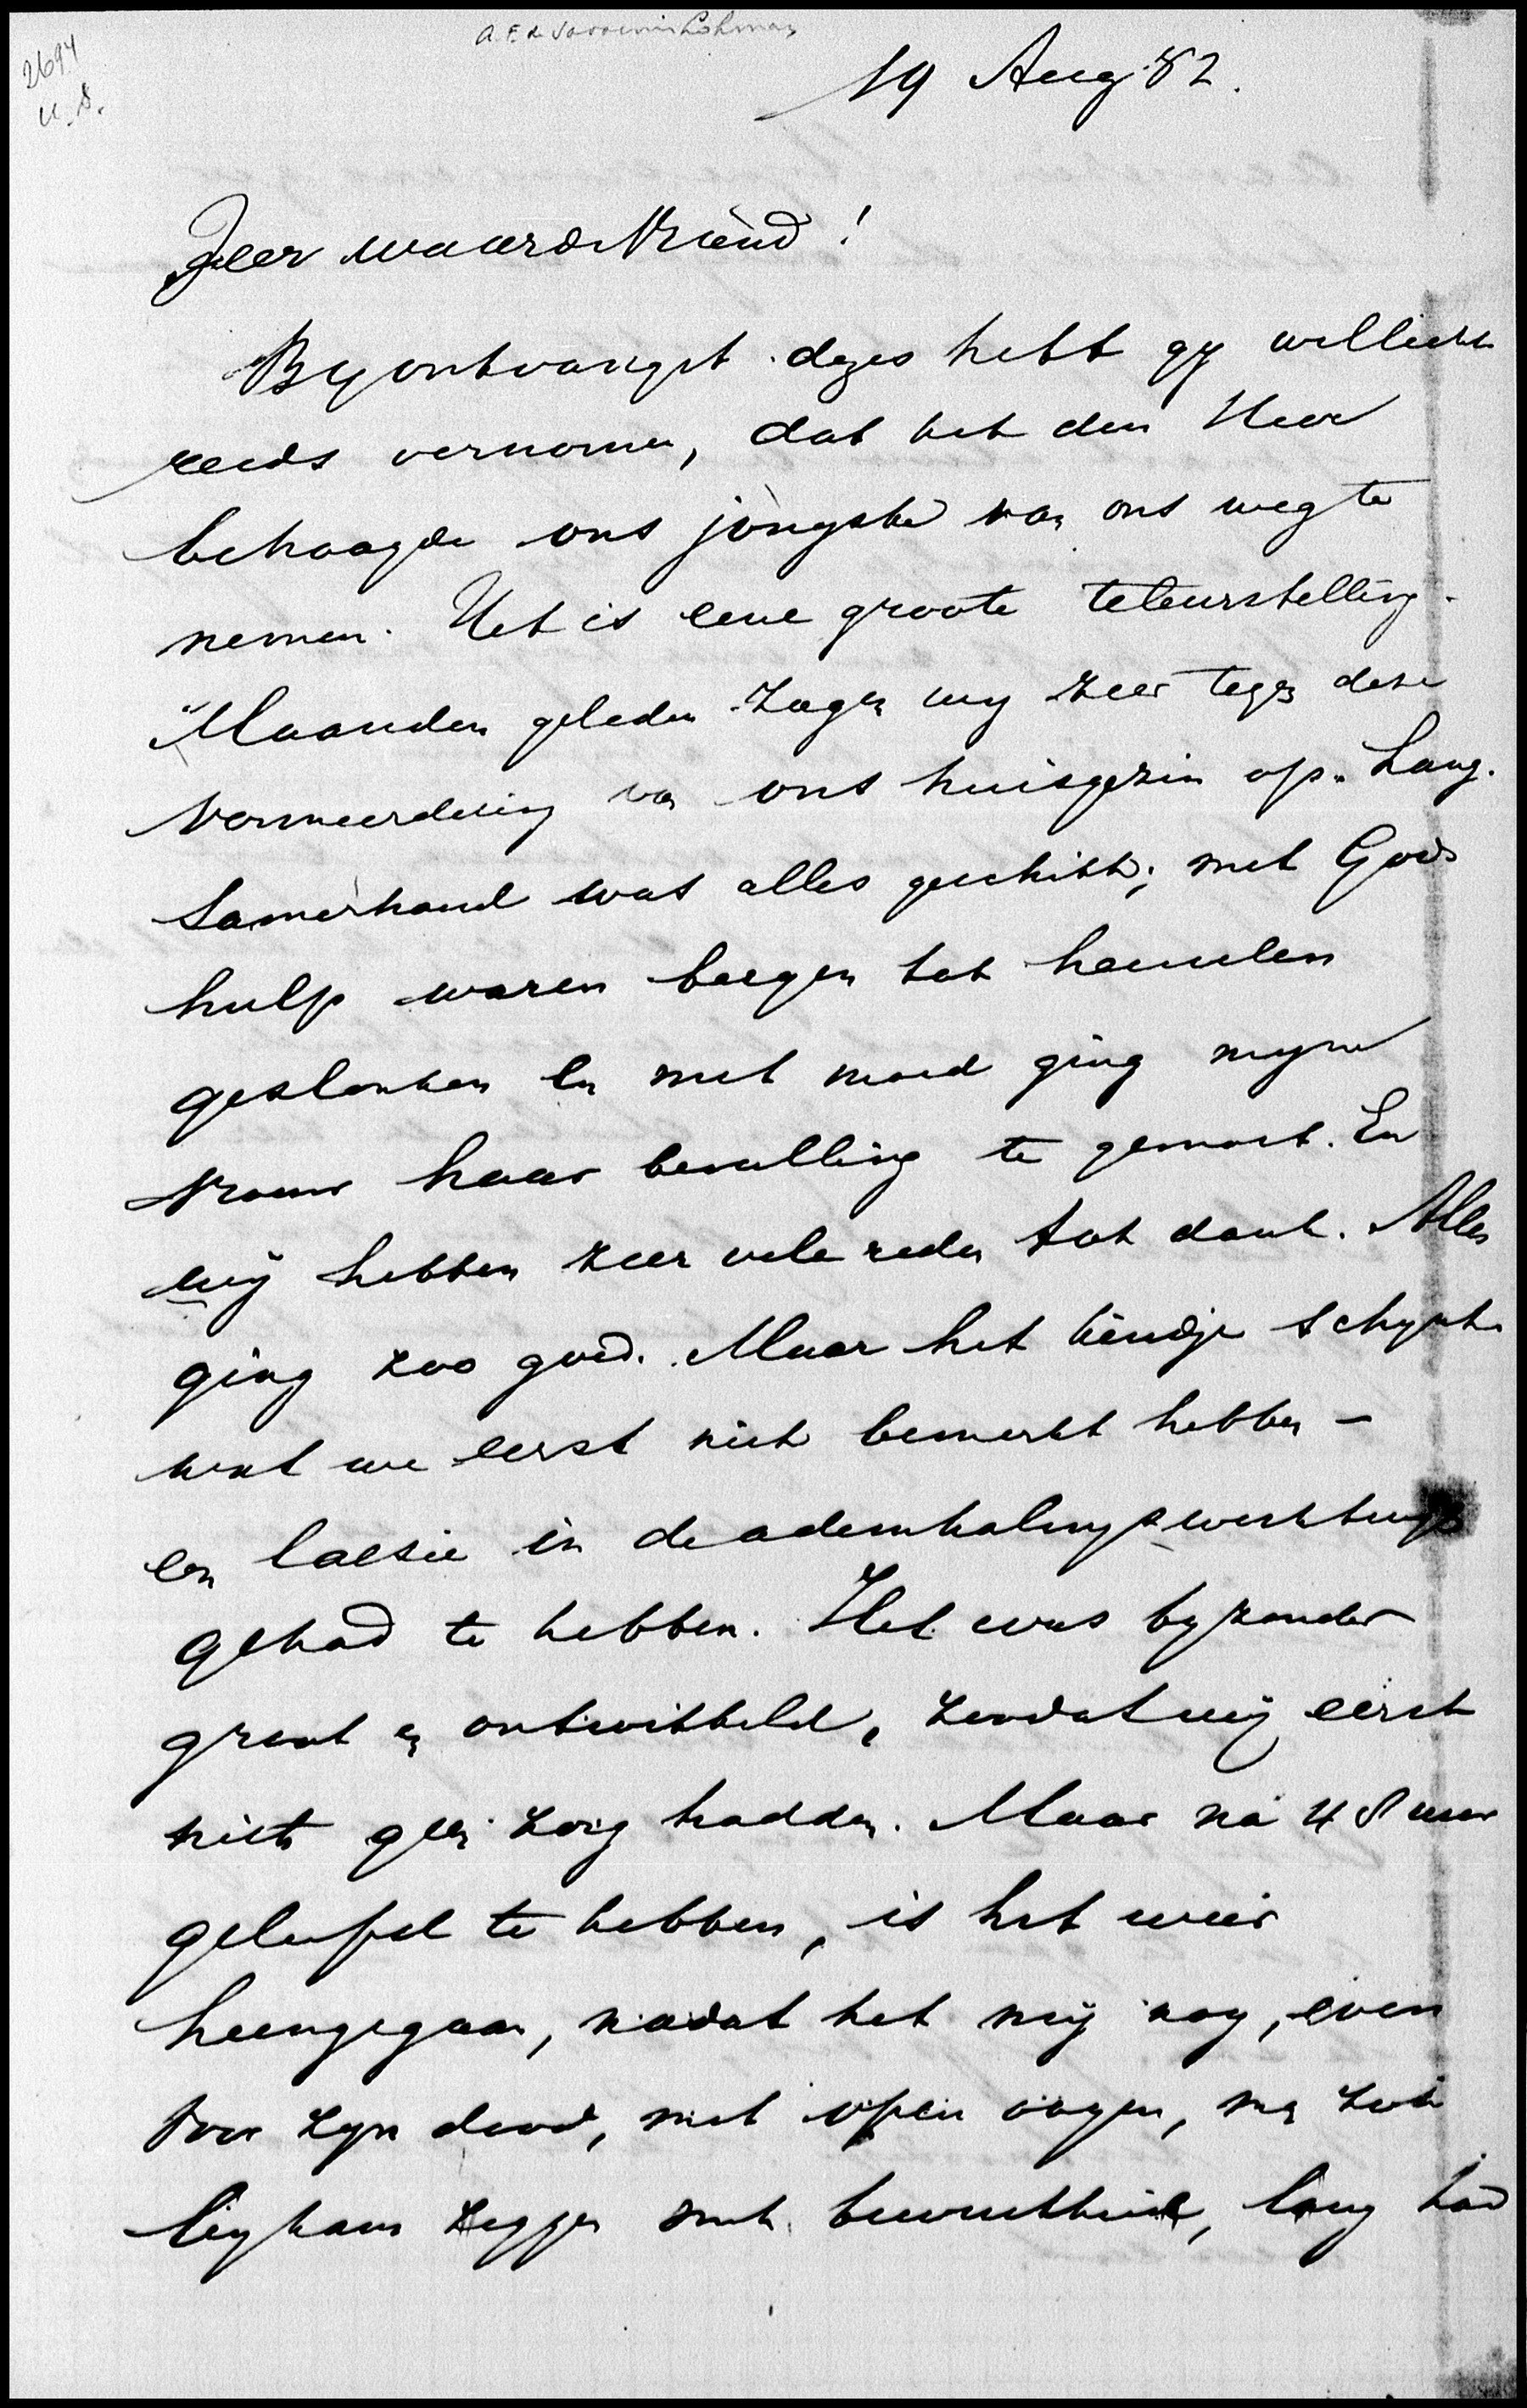 A.F. de Savornin Lohman
2694
19 Aug. 82.
Zeer waarde Vriend!
By ontvangst dezes hebt gy wellicht
reeds vernomen, dat het den Heer
behaagde ons jongste van ons weg te
nemen. Het is eene groote teleurstelling.
Maanden geleden zagen wy zeer tegen deze
vermeerdering van ons huisgezin op. Lang-
samerhand was alles geschikt; met Gods
hulp waren bergen tot heuvelen
geslonken en met moed ging myne
vrouw haar bevalling te gemoet. En
wij hebben zeer vele reden tot dank. Alles
ging zoo goed. Maar het kindje schynt
wat we eerst niet bemerkt hebben –
een laesie in de ademhalingswerktuigen
gehad te hebben. Het was byzonder
groot en ontwikkeld, zoodat wij eerst
niets geen zorg hadden. Maar na 48 uur
geleefd te hebben, is het weer
heengegaan, nadat het mij nog, even
voor zyn dood, met open oogen, en zoo
ligchaam zeggen met bewustheid, lang had